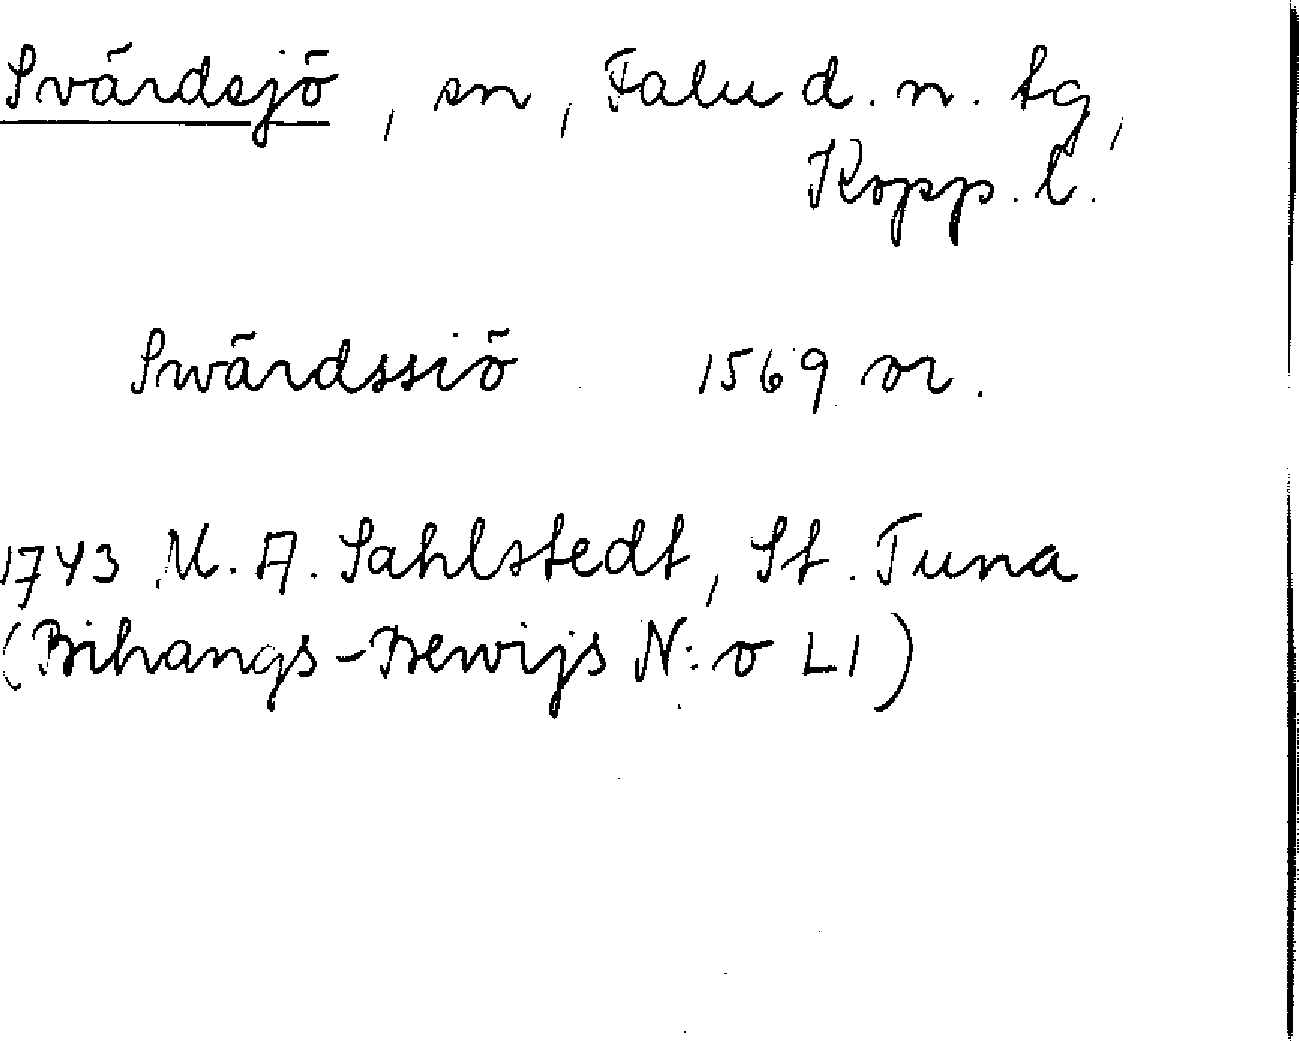 Svärdsjö, sn, Falu d. n. tg,
Kopp. l.
Swärdssiö 1569 or.
1743 M. A. Sahlstedt, St. Tuna
(Bihangs-Bewijs N:o LI)